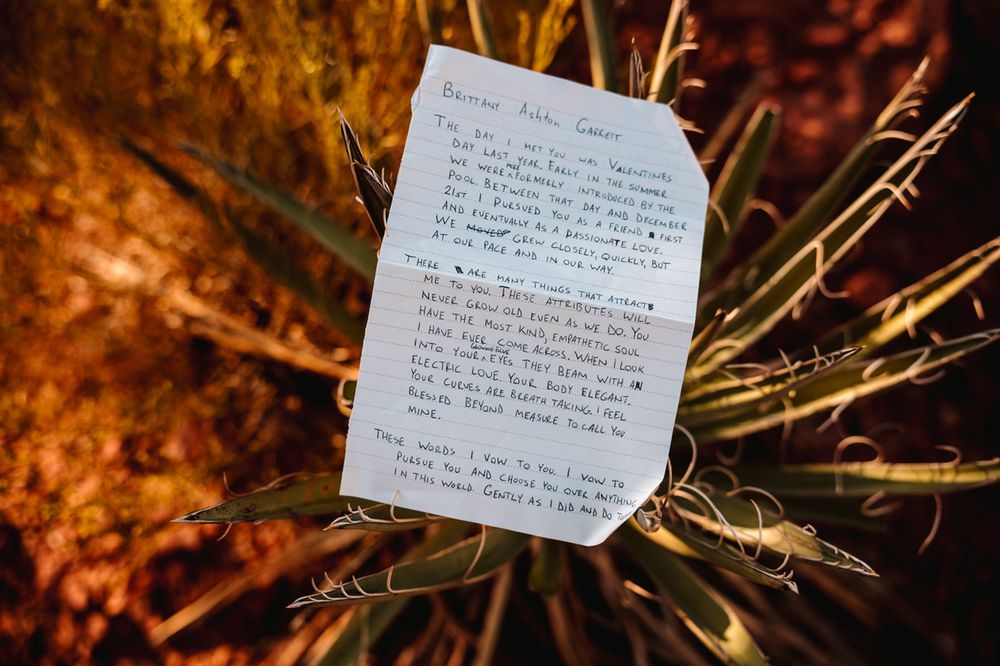 BRITTANY Ashton GARRETT
THE DAY I MET YOU WAS VALENTINES
DAY LAST YEAR. EARLY IN THE SUMMER
WE WERE FORMERLLY INTRODUCED BY THE
POOL. BETWEEN THAT DAY AND DECEMBER
21st I PURSUED YOU AS A FRIEND FIRST
AND EVENTUALLY AS A PASSIONATE LOVE.
WE GREW CLOSELY, QUICKLY, BUT
AT OUR PACE AND IN OUR WAY.
THERE ARE MANY THINGS THAT ATTRACT
ME TO YOU. THESE ATTRIBUTES WILL
NEVER GROW OLD EVEN AS WE DO. YOU
HAVE THE MOST KIND, EMPATHETIC SOUL
I HAVE EVER COME ACROSS. WHEN I LOOK
INTO YOUR EYES THEY BEAM WITH AN
ELECTRIC LOVE. YOUR BODY ELEGANT.
YOUR CURVES ARE BREATH TAKING. I FEEL
BLESSED BEYOND MEASURE TO CALL YOU
MINE.
THESE WORDS I VOW TO YOU. I VOW TO
PURSUE YOU AND CHOOSE YOU OVER ANYTHING
IN THIS WORLD. GENTLY AS I DID AND DO